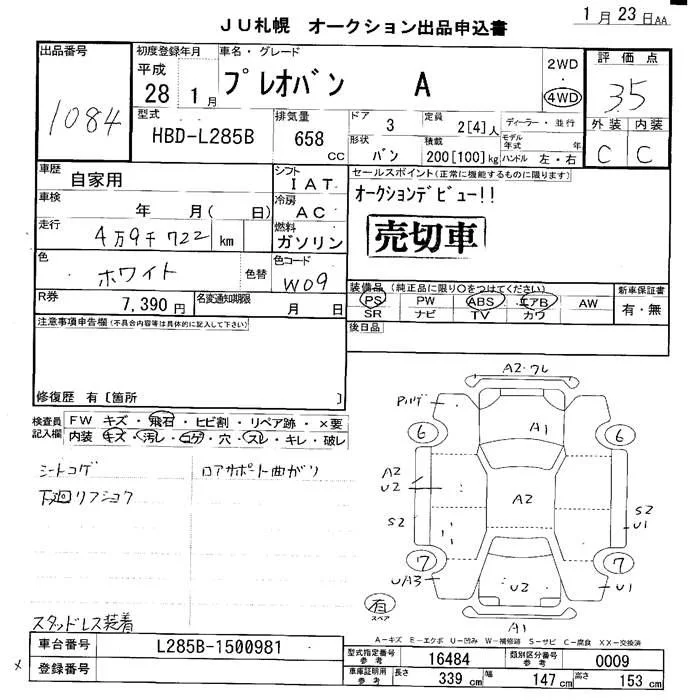 JU札幌 オークション出品申込書
1月23日AA
出品番号
1084
初度登録年月
平成
28 1月
車名・グレード
プレオバン A
2WD
・
4WD
評価点
35
型式
HBD-L285B
排気量
658
CC
ドア
3
定員
2[4]人
ディーラー・並行
モデル年式 年
形状
バン
積載
200[100]kg
ハンドル 左・右
外装 内装
C C
車歴
自家用
シフト
IAT
車検
年 月( 日)
冷房
AC
走行
4万9千722 km
燃料
ガソリン
色
ホワイト
色替
色コード
W09
R券
7,390円
名変通知期限
月 日
セールスポイント(正常に機能するものに限ります)
オークションデビュー!!
売切車
装備品(純正品に限り○をつけてください)
PS PW ABS エアB AW
SR ナビ TV カワ
新車保証書
有・無
後日品
注意事項申告欄(不具合内容等は具体的に記入して下さい)
修復歴 有[箇所 ]
検査員記入欄
FW キズ・飛石・ヒビ割・リペア跡・×要
内装 キズ・汚レ・コゲ・穴・スレ・キレ・破レ
シートコゲ
ロアサポート曲がり
下廻リフショク
スタッドレス装着
A2・ワレ
A1
6
6
A2
U2
A2
S2
U1
S2
7
7
UA3
U2
U1
A1
有
スペア
A-キズ E-エクボ U-凹み W-補修跡 S-サビ C-腐食 XX-交換済
車台番号
L285B-1500981
登録番号
型式指定番号
参考
16484
類別区分番号
参考
0009
車庫証明用
参考
長さ
339cm
幅
147cm
高さ
153cm